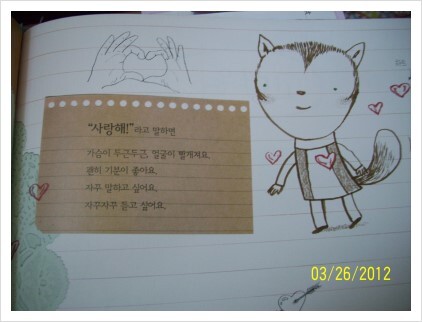 "사랑해!"라고 말하면
가슴이 두근두근, 얼굴이 빨개져요.
괜히 기분이 좋아요.
자꾸 말하고 싶어요.
자꾸자꾸 듣고 싶어요.
03/26/2012